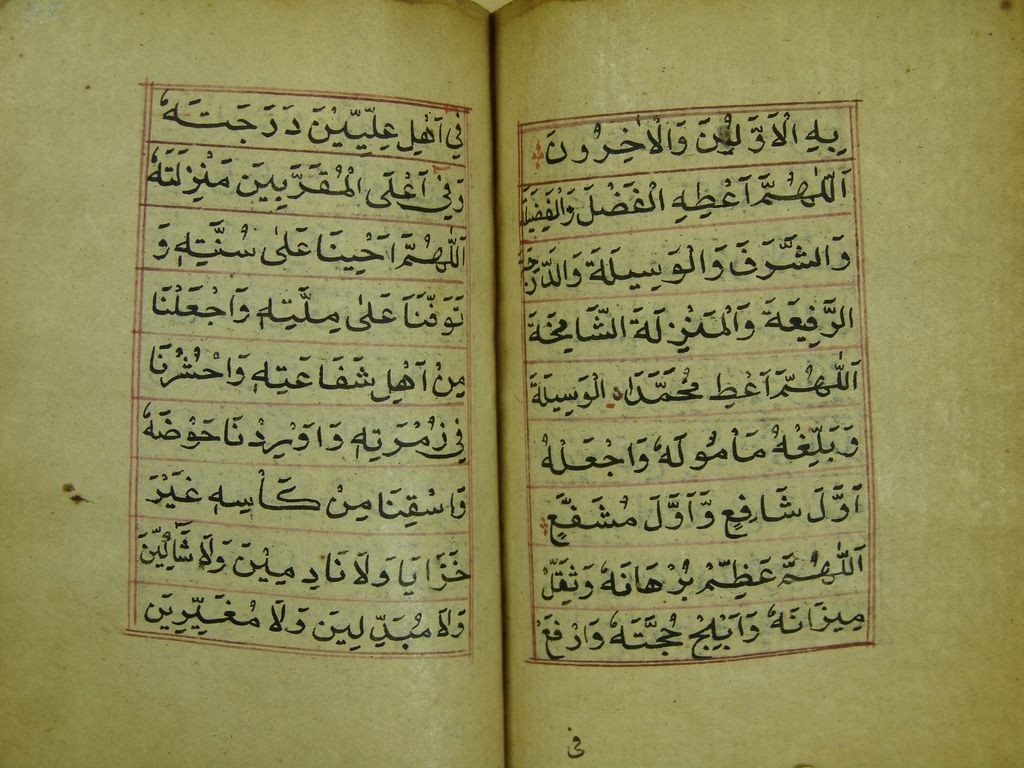 بِهِ الْاَوَّلُوْنَ وَالْاٰخِرُوْنَ
اَللّٰهُمَّ اَعْطِهِ الْفَضْلَ وَالْفَضِيْلَةَ
وَالشَّرَفَ وَالْوَسِيلَةَ وَالدَّرَجَةَ
الرَّفِيعَةَ وَالْمَنْزِلَةَ الشَّامِخَةَ
اَللّٰهُمَّ اَعْطِ مُحَمَّدَانِ الْوَسِيلَةَ
وَبَلِّغْهُ مَاْمُولَهُ وَاجْعَلْهُ
اَوَّلَ شَافِعٍ وَّاَوَّلَ مُشَفَّعٍ
اَللّٰهُمَّ عَظِّمْ بُرْهَانَهُ وَثَقِّلْ
مِيزَانَهُ وَاَبْلِجْ حُجَّتَهُ وَارْفَعْ
فى
فِيْ اَهْلِ عِلِّيِّيْنَ دَرَجَتَهُ
وَفِيْ اَعْلَى الْمُقَرَّبِيْنَ مَنْزِلَتَهُ
اَللّٰهُمَّ اَحْيِنَا عَلٰى سُنَّتِهٖ وَ
تَوَفَّنَا عَلٰى مِلَّتِهٖ وَاجْعَلْنَا
مِنْ اَهْلِ شَفَاعَتِهٖ وَاحْشُرْنَا
فِيْ زُمْرَتِهٖ وَاَوْرِدْنَا حَوْضَهُ
وَاسْقِنَا مِنْ كَاْسِهٖ غَيْرَ
خَزَايَا وَلَا نَادِمِيْنَ وَلَا شَاكِّيْنَ
وَلَا مُبَدِّلِيْنَ وَلَا مُغَيِّرِيْنَ